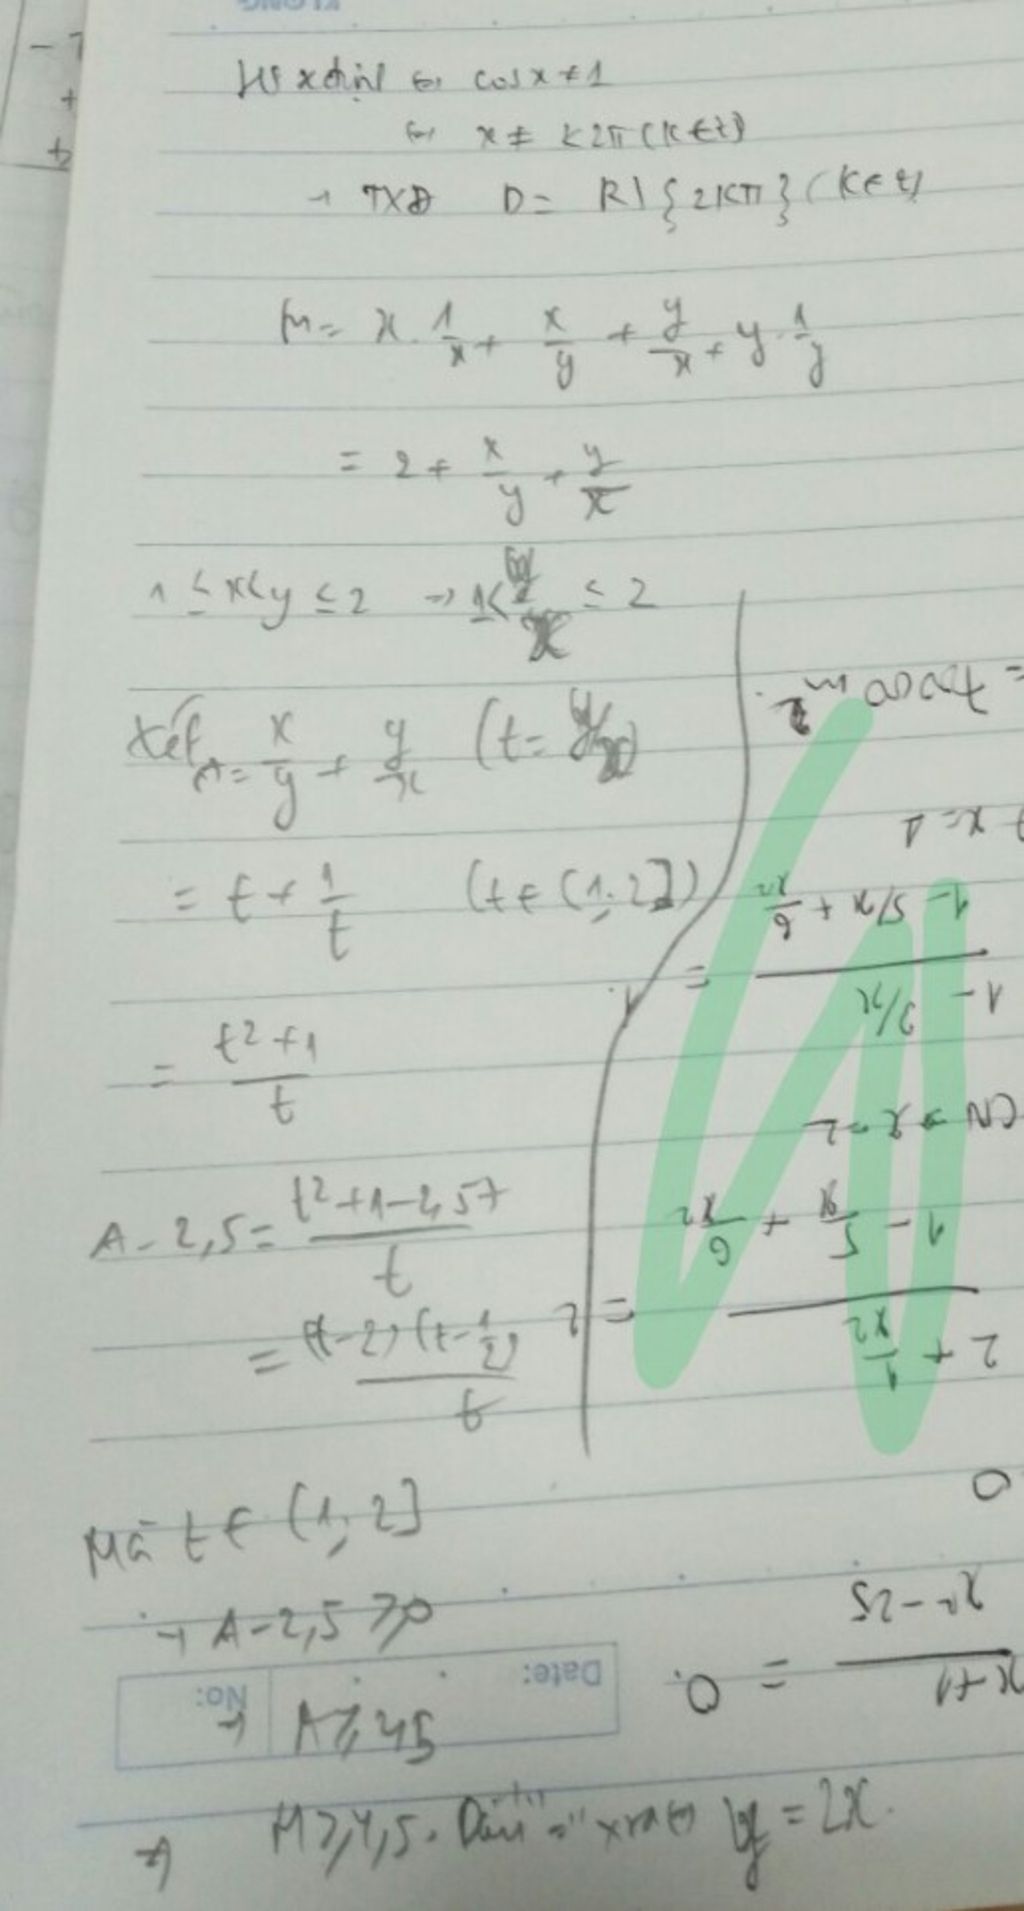 HS xđịnh ⇔ cosx ≠ 1
⇔ x ≠ k2π (k∈Z)
→ TXĐ D = R\{2kπ} (k∈Z)
M = x . 1/x + x/y + y/x + y . 1/y
= 2 + x/y + y/x
1 ≤ x < y ≤ 2 → 1 < y/x ≤ 2
Xét A = x/y + y/x (t = y/x)
= t + 1/t (t ∈ (1; 2])
= (t² + 1)/t
A - 2,5 = (t² + 1 - 2,5t)/t
= (t - 2)(t - 1/2)/t
Mà t ∈ (1; 2]
→ A - 2,5 ≥ 0
→ A ≥ 4,5
→ M ≥ 4,5. Dấu "=" xra ⇔ y = 2x.
Date:
No:
x + 1 / x² - 25 = 0
0
2 + 1/x² / 1 - 5/x + 6/x² = 2
CN → x = 2
1 - 3/x / 1 - 5/x + 6/x² =
x = 1